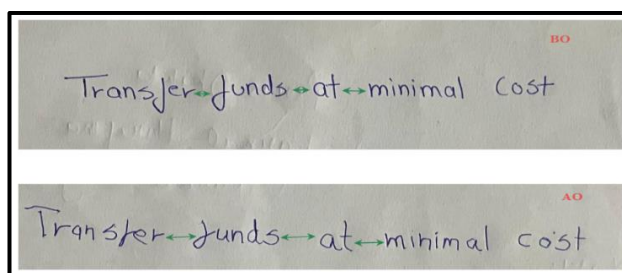 BO
Transfer funds at minimal cost
AO
Transfer funds at minimal cost